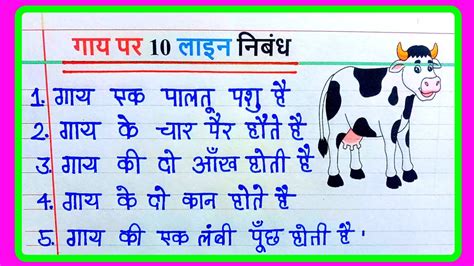 गाय पर 10 लाइन निबंध
1. गाय एक पालतू पशु है
2. गाय के चार पैर होते है
3. गाय की दो आँख होती है
4. गाय के दो कान होते है
5. गाय की एक लंबी पूँछ होती है।